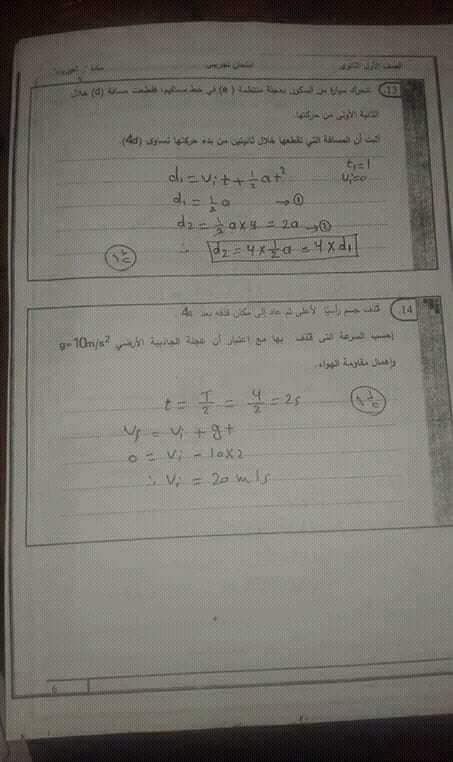 الصف الأول الثانوى امتحان تجريبى مادة
13. تتحرك سيارة من السكون بعجلة منتظمة (a) في خط مستقيم، فقطعت مسافة (d) خلال
الثانية الأولى من حركتها.
أثبت أن المسافة التي تقطعها خلال ثانيتين من بدء حركتها تساوى (4d).
t₁=1
d₁ = Vᵢt + ½at² Vᵢ=0
d₁ = ½a → ①
d₂ = ½a×4 = 2a → ①
∴ d₂ = 4×½a = 4×d₁
14. قذف جسم رأسيًا لأعلى ثم عاد إلى مكان قذفه بعد 4s
إحسب السرعة التى قذف بها مع إعتبار أن عجلة الجاذبية الأرضي g=10m/s²
وإهمال مقاومة الهواء.
t = T/2 = 4/2 = 2s
Vf = Vᵢ + gt
0 = Vᵢ - 10×2
∴ Vᵢ = 20 m/s
6